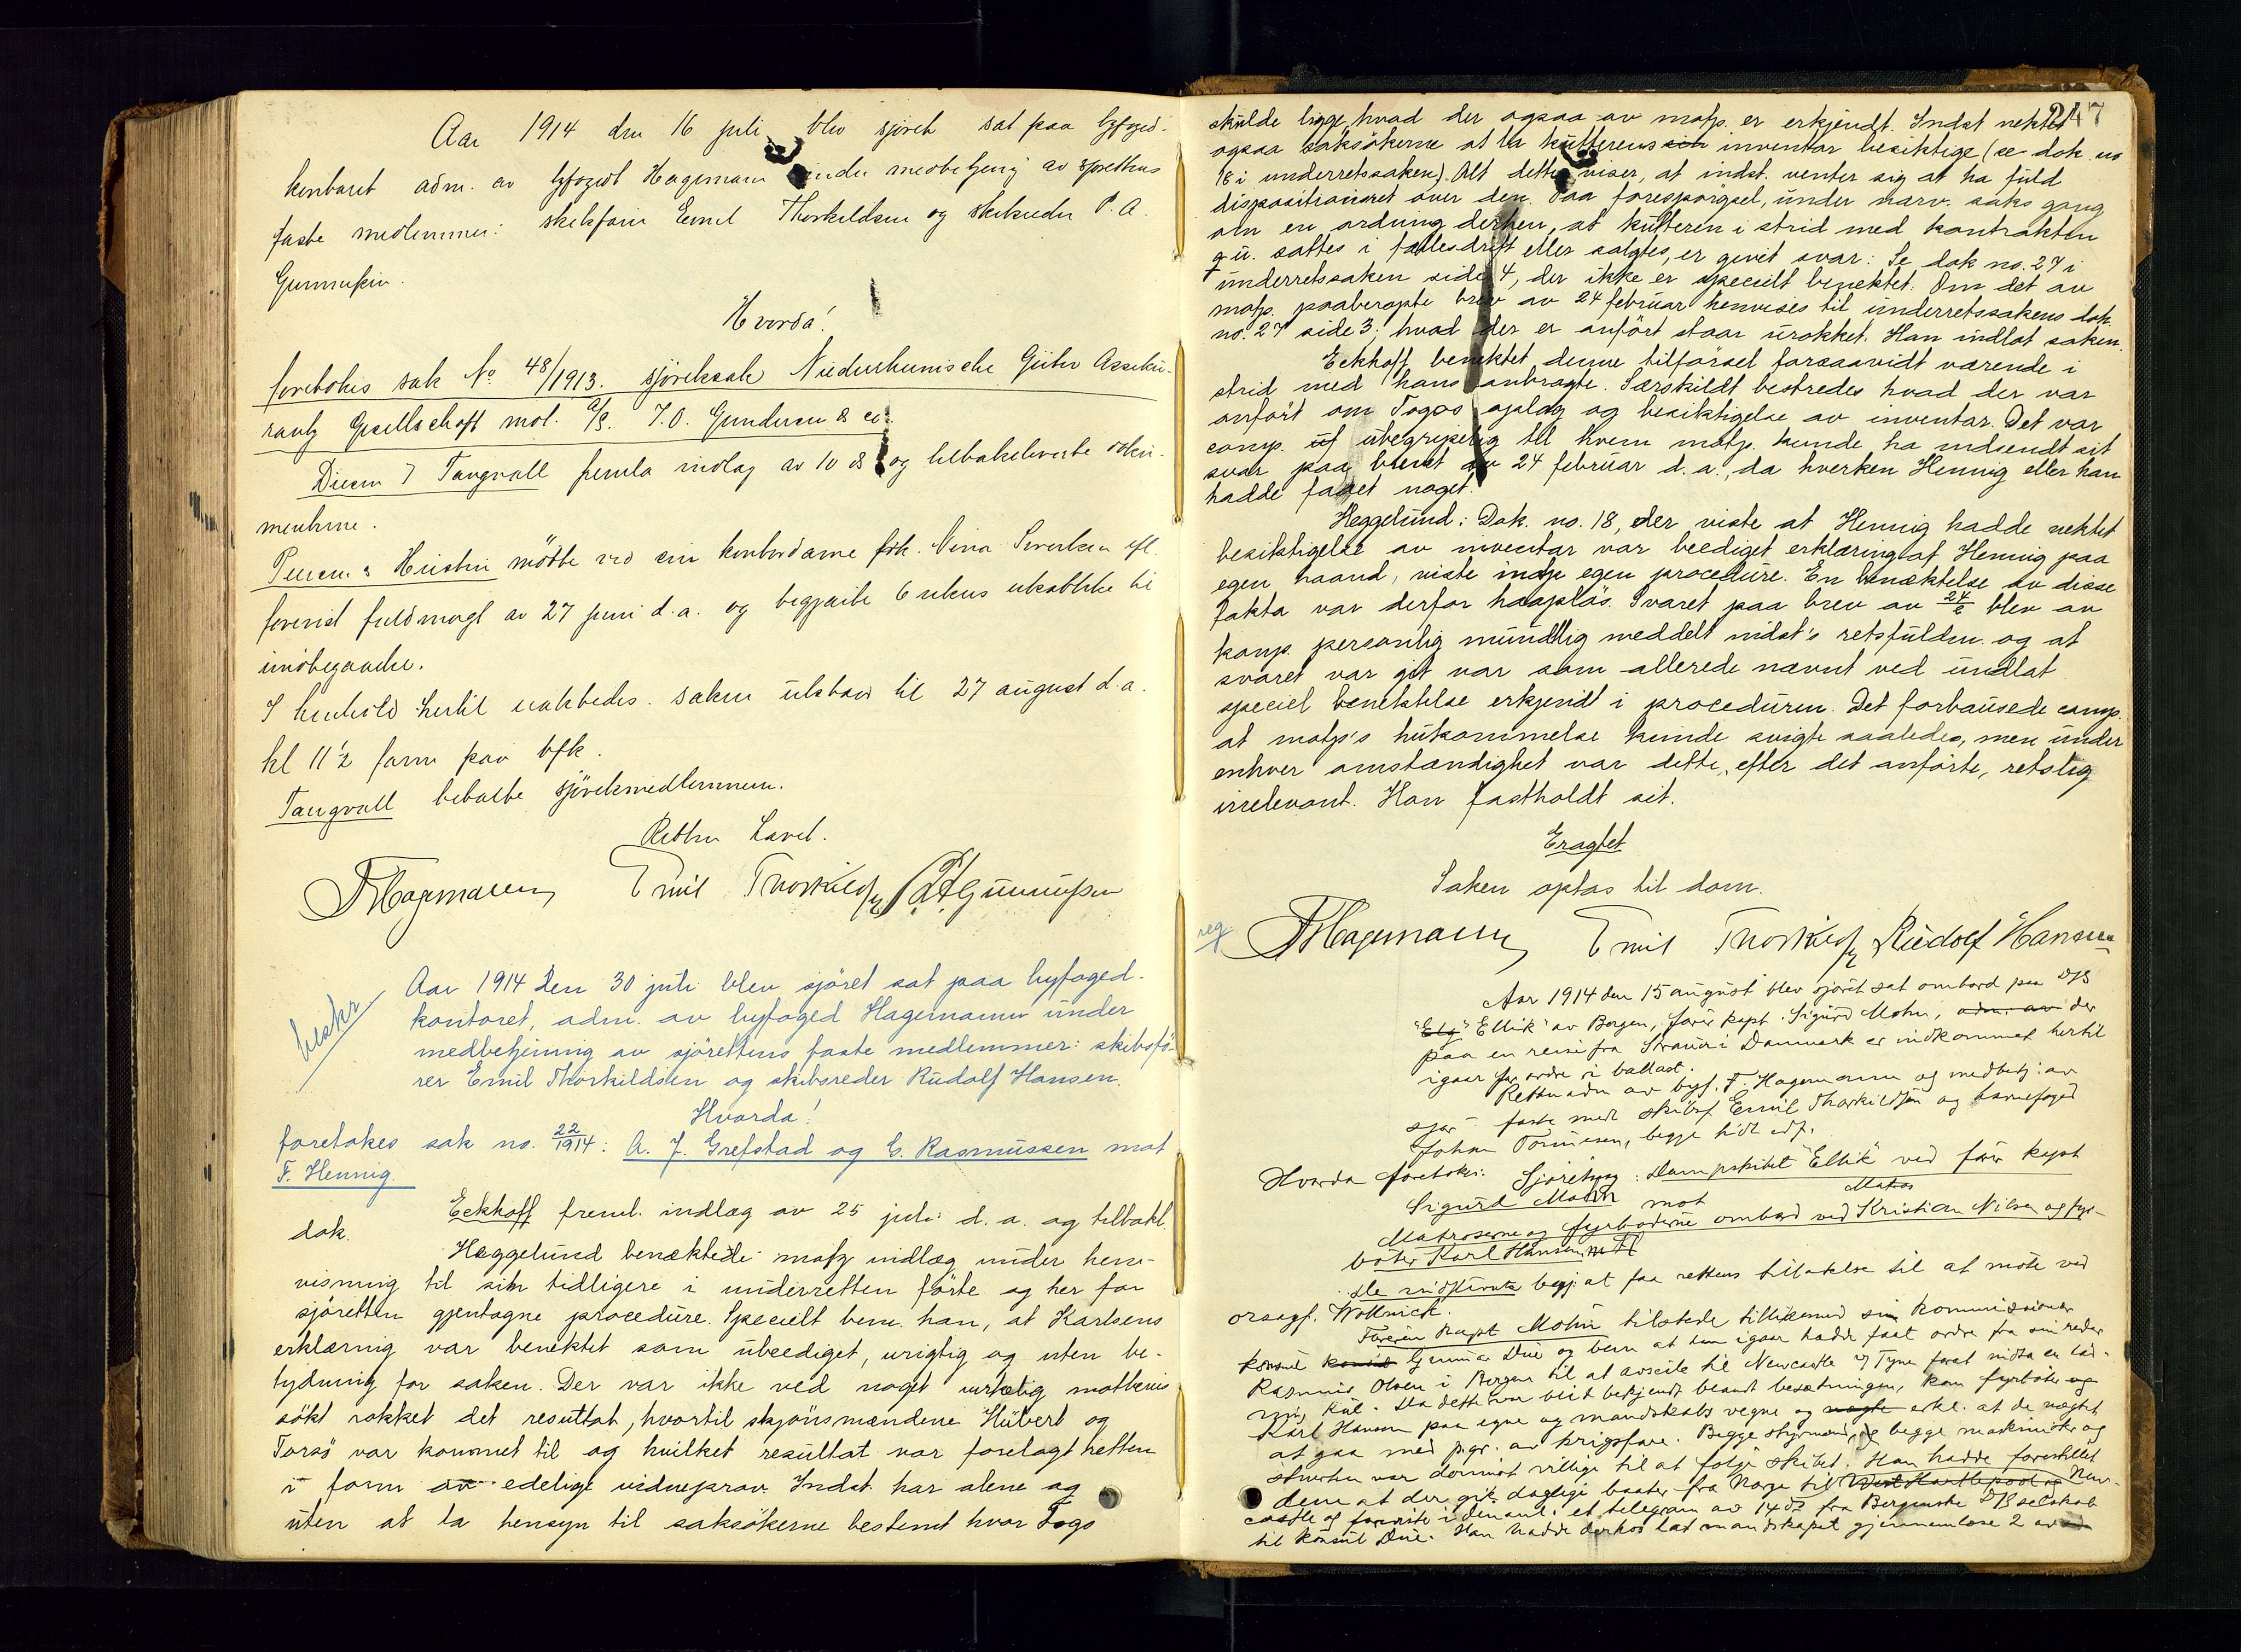 Aar 1914 den 16 juli blev sjöret sat paa byfoged-
kontoret adm. av byfoged Hagemann under medbetjening av sjørettens
faste medlemmer: skibsförer Emil Thorkildsen og skibsreder P. A.
Gunnufsen.
Hvorda!
foretokes sak No 48/1913. sjöretssak Niederrheinische Güter Asseku-
rantz Gesellschaft mot A/S. J. O. Gundersen & co.
Tangvall freml. indlæg av 10 ds og tilbakeleverte doku-
menterne.
mötte ved sin kontordame frk. Nina Sivertsen efl.
forevist fuldmagt av 27 juni d. a. og begjærte 6 ukers utsættelse til
imøtegaaelse.
I henhold hertil utsattes saken til 27 august d. a.
kl 11½ form paa bfk.
Tangvall betalte sjöretsmedlemmerne.
Retten hævet.
FHagemann Emil Thorkildsen P. A. Gunnufsen
beskr
Aar 1914 den 30 juli blev sjöret sat paa byfoged-
kontoret, adm. av byfoged Hagemann under
medbetjening av sjörettens faste medlemmer: skibsfö-
rer Emil Thorkildsen og skibsreder Rudolf Hansen.
Hvorda!
foretokes sak no. 22/1914: A. J. Grefstad og C. Rasmussen mot
F. Hennig.
Eckhoff freml. indlæg av 25 juli d. a. og tilbakl.
dok.
Heggelund benæktede motp indlæg under hen-
visning til sin tidligere i underretten förte og her for
sjöretten gjentagne procedure. Specielt bem. han, at Karlsens
erklæring var benektet som ubeediget, urigtig og uten be-
tydning for saken. Der var ikke ved noget virkelig motbevis
sökt rokket det resultat, hvortil skjönsmændene Hübert og
Torsö var kommet til og hvilket resultat var forelagt retten
i form av edelige vidneprov. Indst. har alene og
uten at ta hensyn til saksökerne bestemt hvor Togo
247
skulde ligge, hvad der ogsaa av motp. er erkjendt. Indst nektet
ogsaa saksökerne at ta kutterens sin inventar besiktige (se dok no
18 i underretssaken). Alt dette viser, at indst. venter sig at ha fuld
dispositionsret over den. Paa forespörgsel, under nærv. saks gang
om en ordning derhen, at kutteren i strid med kontrakten
g. u. sattes i fællesdrift eller solgtes, er givet svar: Se dok no. 27 i
underretssaken side 4, der ikke er specielt benektet. Om det av
motp. paaberopte brev av 24 februar henvises til underretssakens dok
no. 27 side 3: hvad der er anfört staar urokket. Han indlot saken.
Eckhoff benektet denne tilförsel forsaavidt værende i
strid med hans anbragte. Særskildt bestredes hvad der var
anfört om Togos oplag og besiktigelse av inventar. Det var
comp. uf ubegripelig til hvem motp. kunde ha indsendt sit
svar paa brevet av 24 februar d. a., da hverken Hennig eller han
hadde faaet noget.
Heggelund: Dok. no. 18, der viste at Hennig hadde nektet
besiktigelse av inventar var beediget erklæring af Hennig paa
egen haand, viste indp egen procedure. En benæktelse av disse
fakta var derfor haaplös. Svaret paa brev av 24/2 blev av
komp. personlig mundtlig meddelt indst's retsfuldm. og at
svaret var git var som allerede nævnt ved undlat
speciel benektelse erkjendt i proceduren. Det forbausede comp.
at motp's hukommelse kunde svigte saaledes, men under
enhver omstændighet var dette, efter det anförte, retslig
irrelevant. Han fastholdt sit.
Eragtet
Saken optas til dom.
reg
FHagemann Emil Thorkildsen Rudolf Hansen
Aar 1914 den 15 august blev sjöret sat ombord paa D/S
"Elg" "Ellik" av Bergen, förer kapt. Sigurd Mohn, adm. av der
paa en reise fra Struer i Danmark er indkommet hertil
igaar for ordre i ballast.
Retten adm av byf. F. Hagemann og medbetj: av
sjör- faste medl skibsf Emil Thorkildsen og havnefoged
Johan Tönnesen, begge hidt edf.
Hvorda foretokes: Sjöretssag: Dampskibet "Ellik" ved förer kapt
Sigurd Mohn mot Matros
Matroserne og fyrböderne ombord ved Kristian Nilsen og fyr-
böter Karl Hansen m fl
De indstevnte begj: at faa rettens tilladelse til at möte ved
orsagf. Wollnick.
Föreren Kapt Mohn tilstede tillikemed sin kommissionær
konsul Gunnar Due og bem at han igaar hadde faat ordre fra sin reder
Rasmus Olsen i Bergen til at avseile til Newcastle o/ Tyne forat indta en lad-
ning kul. Da dette var blit bekjendt blandt besætningen, kom fyrböter og
Karl Hansen paa egne og mandskabs vegne og nægte erkl. at de nægtet
at gaa med pgr. av krigsfare. Begge styrmænd, og begge maskinister og
stuerten var derimot villige til at følge skibet. Han hadde forestillet
dem at der gik daglige baater fra Norge til West Hartlepool og New-
castle og foreviste i denanl. et telegram av 14 ds fra Bergenske D/S selskab
til konsul Due. Han hadde derhos lat mandskapet gjennemlæse 2 av